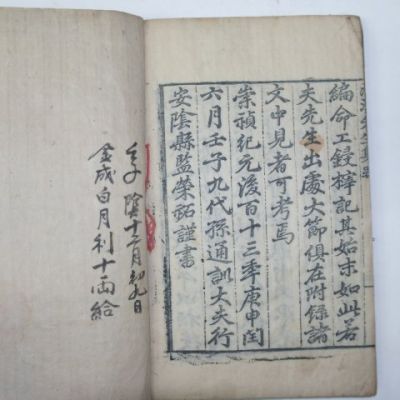 編命工鋟榟記其始末如此若
夫先生出處大節俱在附錄諸
文中見者可考焉
崇禎紀元後百十三年庚申閏
六月壬子九代孫通訓大夫行
安陰縣監榮祏謹書
壬子陰十二月初九日
金成白月利十兩給